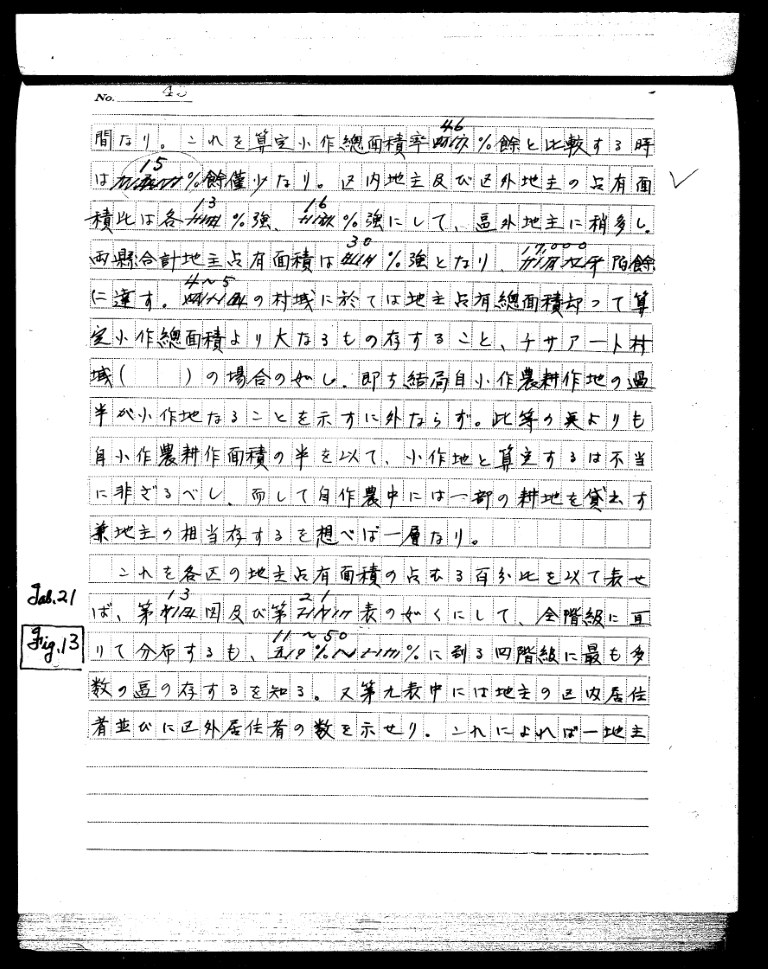 No. 43
間なり。これを算定小作總面積率46%餘と比較する時
は15%餘僅少なり。区内地主及び区外地主の占有面
積比は各13%強、16%強にして、區外地主に稍多し。
両縣合計地主占有面積は30%強となり、17,000陌餘
に達す。4～5の村域に於ては地主占有總面積却つて算
定小作總面積より大なるもの存すること、チサアート村
域(　　)の場合の如し。即ち結局自小作農耕作地の過
半が小作地なることを示すに外ならず。此等の奌よりも
自小作農耕作面積の半を以て、小作地と算定するは不当
に非ざるべし。而して自作農中には一部の耕地を貸出す
兼地主の相当存するを想べば一層なり。
これを各区の地主占有面積の占むる百分比を以て表せ
Tab.21
ば、第13図及び第21表の如くにして、全階級に亘
Fig.13
りて分布するも、11～50%に到る四階級に最も多
数の區の存するを知る。又第九表中には地主の区内居住
者並びに区外居住者の数を示せり。これによれば一地主